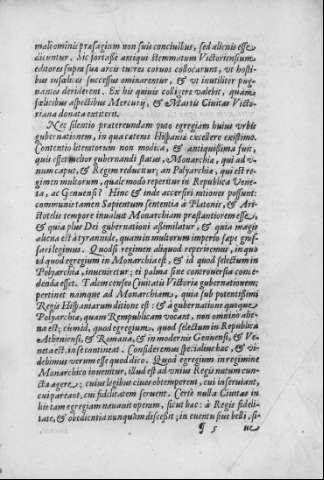 mali ominis præsagium non suis concivibus, sed alienis esse
dicuntur. Sic fortasse antiqui stemmatum Victoriensium
editores supra sua arcis turres coruos collocarunt, vt hosti-
bus infælices successus ominarentur, & vt inutiliter pug-
nantes deriderent. Ex his quiuis colligere valebit, quàm
fælicibus aspectibus Mercurij, & Martis Ciuitas Victo-
riana donata extiterit.
Nec silentio prætereundam puto egregiam huius vrbis
gubernationem, in qua catenâ Hispaniæ excellere existimo.
Contentio literatorum non modica, & antiquissima fuit,
quis esset melior gubernandi status, Monarchia, qui ad v-
num caput, & Regem reducitur; an Polyarchia, qui est re-
gimen multorum, quale modò reperitur in Republica Vene-
ta, ac Genuensi? Hinc & inde acceriri rationes possunt:
communis tamen Sapientum sententia à Platonis, & Ari-
stotelis tempore inualuit Monarchiam præstantiorem esse,
& quia plus Dei gubernationi assimilatur, & quia magis
aliena est à tyrannide, quam in multorum imperio sæpe gras-
sari legimus. Quod si regimen aliquod reperiremus, in quo
id quod egregium in Monarchia est, & id quod selectum in
Polyarchia, inueniretur; ei palma sine controuersia conce-
denda esset. Talem censeo Ciuitatis Victoriæ gubernationem:
pertinet namque ad Monarchiam, quia sub potentissimi
Regis Hispaniarum ditione est: & à gubernatione quoque
Polyarchia, quam Rempublicam vocant, non omnino alie-
na est; cùm id, quod egregium, quod selectum in Republica
Atheniensi, & Romana, & in modernis Genuensi, & Ve-
neta est, in se contineat. Consideremus speciatim hæc, & vi-
debimus verum esse quod dico. Quod egregium in regimine
Monarchico inuenitur, illud est ad vnius Regis nutum cun-
cta agere; cuius legibus ciues obtemperent, cui inseruiant,
cui pareant, cui fidelitatem seruent. Certè nulla Ciuitas in
his tam egregiam nauauit operam, sicut hæc: à Regis fideli-
tate, & obedientia nunquam discessit; in euentu siue belli, si-
¶ 5 ue